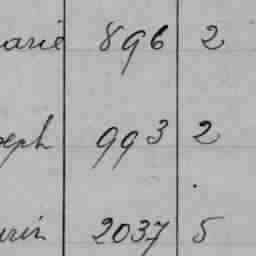 arie 896 2
seph 993 2
urin 2037 5